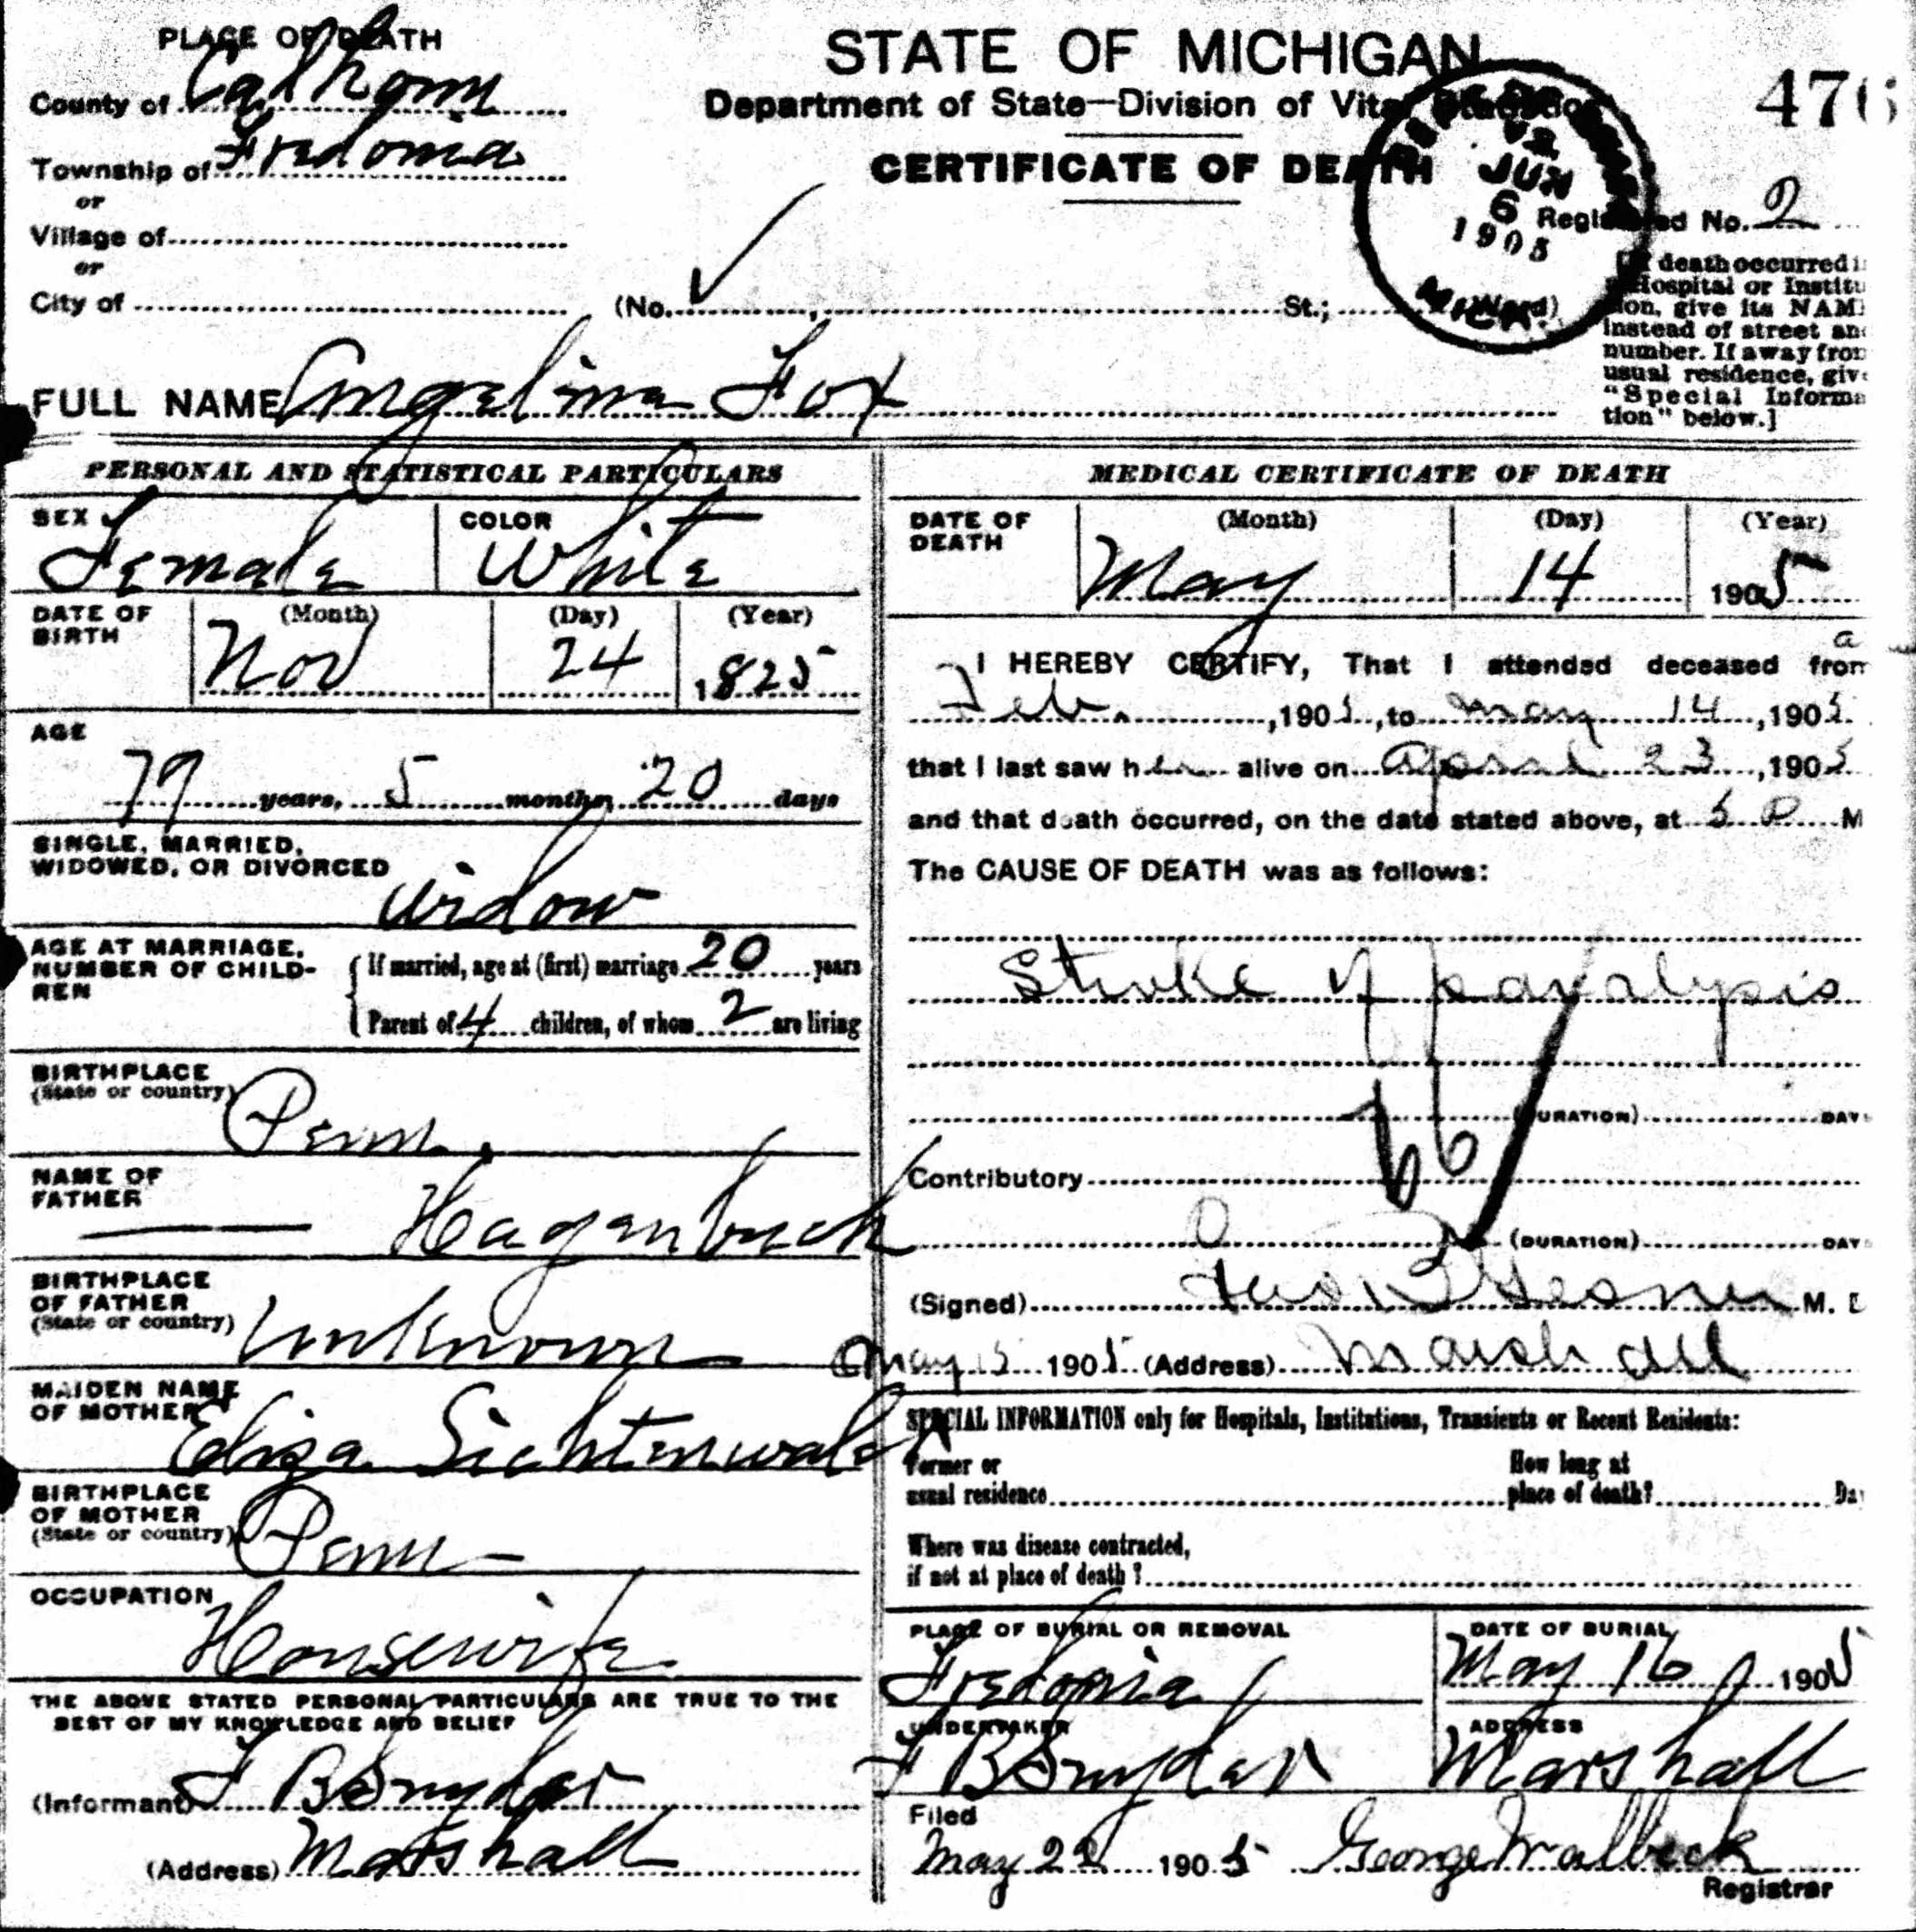 PLACE OF DEATH
County of Calhoun
Township of Fredonia
or
Village of
or
City of
STATE OF MICHIGAN
Department of State—Division of Vital
CERTIFICATE OF DEATH
476
JUN
6
1905
MICH.
Registered No. 2
(No. , St.; Ward)
[If death occurred i
Hospital or Institu
tion, give its NAM
instead of street an
number. If away fro
usual residence, giv
"Special Informa
tion" below.]
FULL NAME Angelina Fox
PERSONAL AND STATISTICAL PARTICULARS
SEX Female
COLOR White
DATE OF BIRTH
(Month) (Day) (Year)
Nov 24 1825
AGE
79 years, 5 months, 20 days
SINGLE, MARRIED,
WIDOWED, OR DIVORCED
Widow
AGE AT MARRIAGE,
NUMBER OF CHILD-
REN
If married, age at (first) marriage 20 years
Parent of 4 children, of whom 2 are living
BIRTHPLACE
(State or country)
Penn.
NAME OF
FATHER
Hagenbuch
BIRTHPLACE
OF FATHER
(State or country)
Unknown
MAIDEN NAME
OF MOTHER
Eliza Lichtenwald
BIRTHPLACE
OF MOTHER
(State or country)
Penn
OCCUPATION
Housewife
THE ABOVE STATED PERSONAL PARTICULARS ARE TRUE TO THE
BEST OF MY KNOWLEDGE AND BELIEF
(Informant) F B Snyder
(Address) Marshall
MEDICAL CERTIFICATE OF DEATH
DATE OF DEATH
(Month) (Day) (Year)
May 14 1905
I HEREBY CERTIFY, That I attended deceased from
Feb. , 1905, to May 14, 1905
that I last saw her alive on April 23, 1905
and that death occurred, on the date stated above, at 5 P M
The CAUSE OF DEATH was as follows:
Stroke of paralysis
66
(DURATION) DAY
Contributory
(DURATION) DAY
(Signed) Gesner M. D
May 15 1905 (Address) Marshall
SPECIAL INFORMATION only for Hospitals, Institutions, Transients or Recent Residents:
Former or
usual residence
How long at
place of death? Da
Where was disease contracted,
if not at place of death?
PLACE OF BURIAL OR REMOVAL
Fredonia
DATE OF BURIAL
May 16, 1905
UNDERTAKER
F B Snyder
ADDRESS
Marshall
Filed
May 22 1905 George Walbeck
Registrar